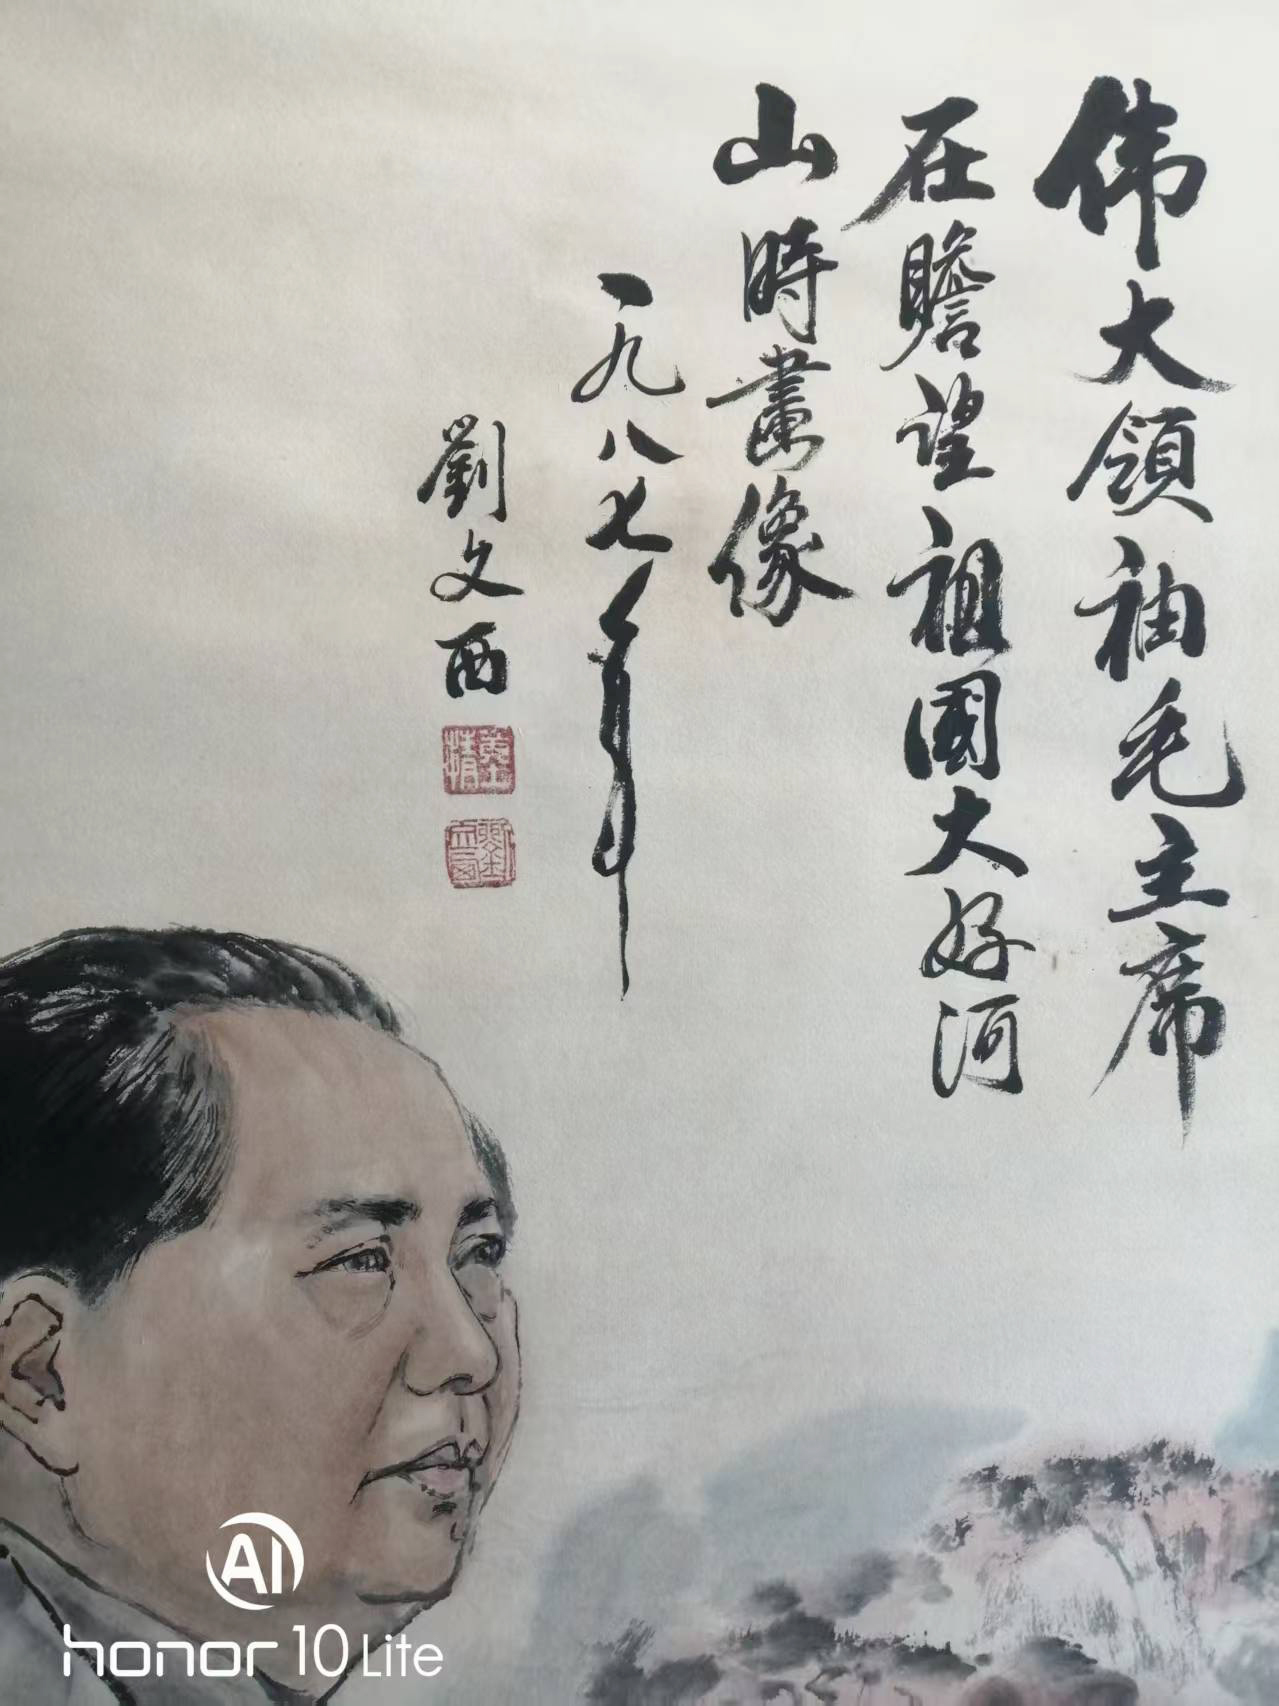 伟大領袖毛主席
在瞻望祖國大好河
山時畫像
一九八七年
劉文西
黄土情
劉文西
AI
honor 10 Lite